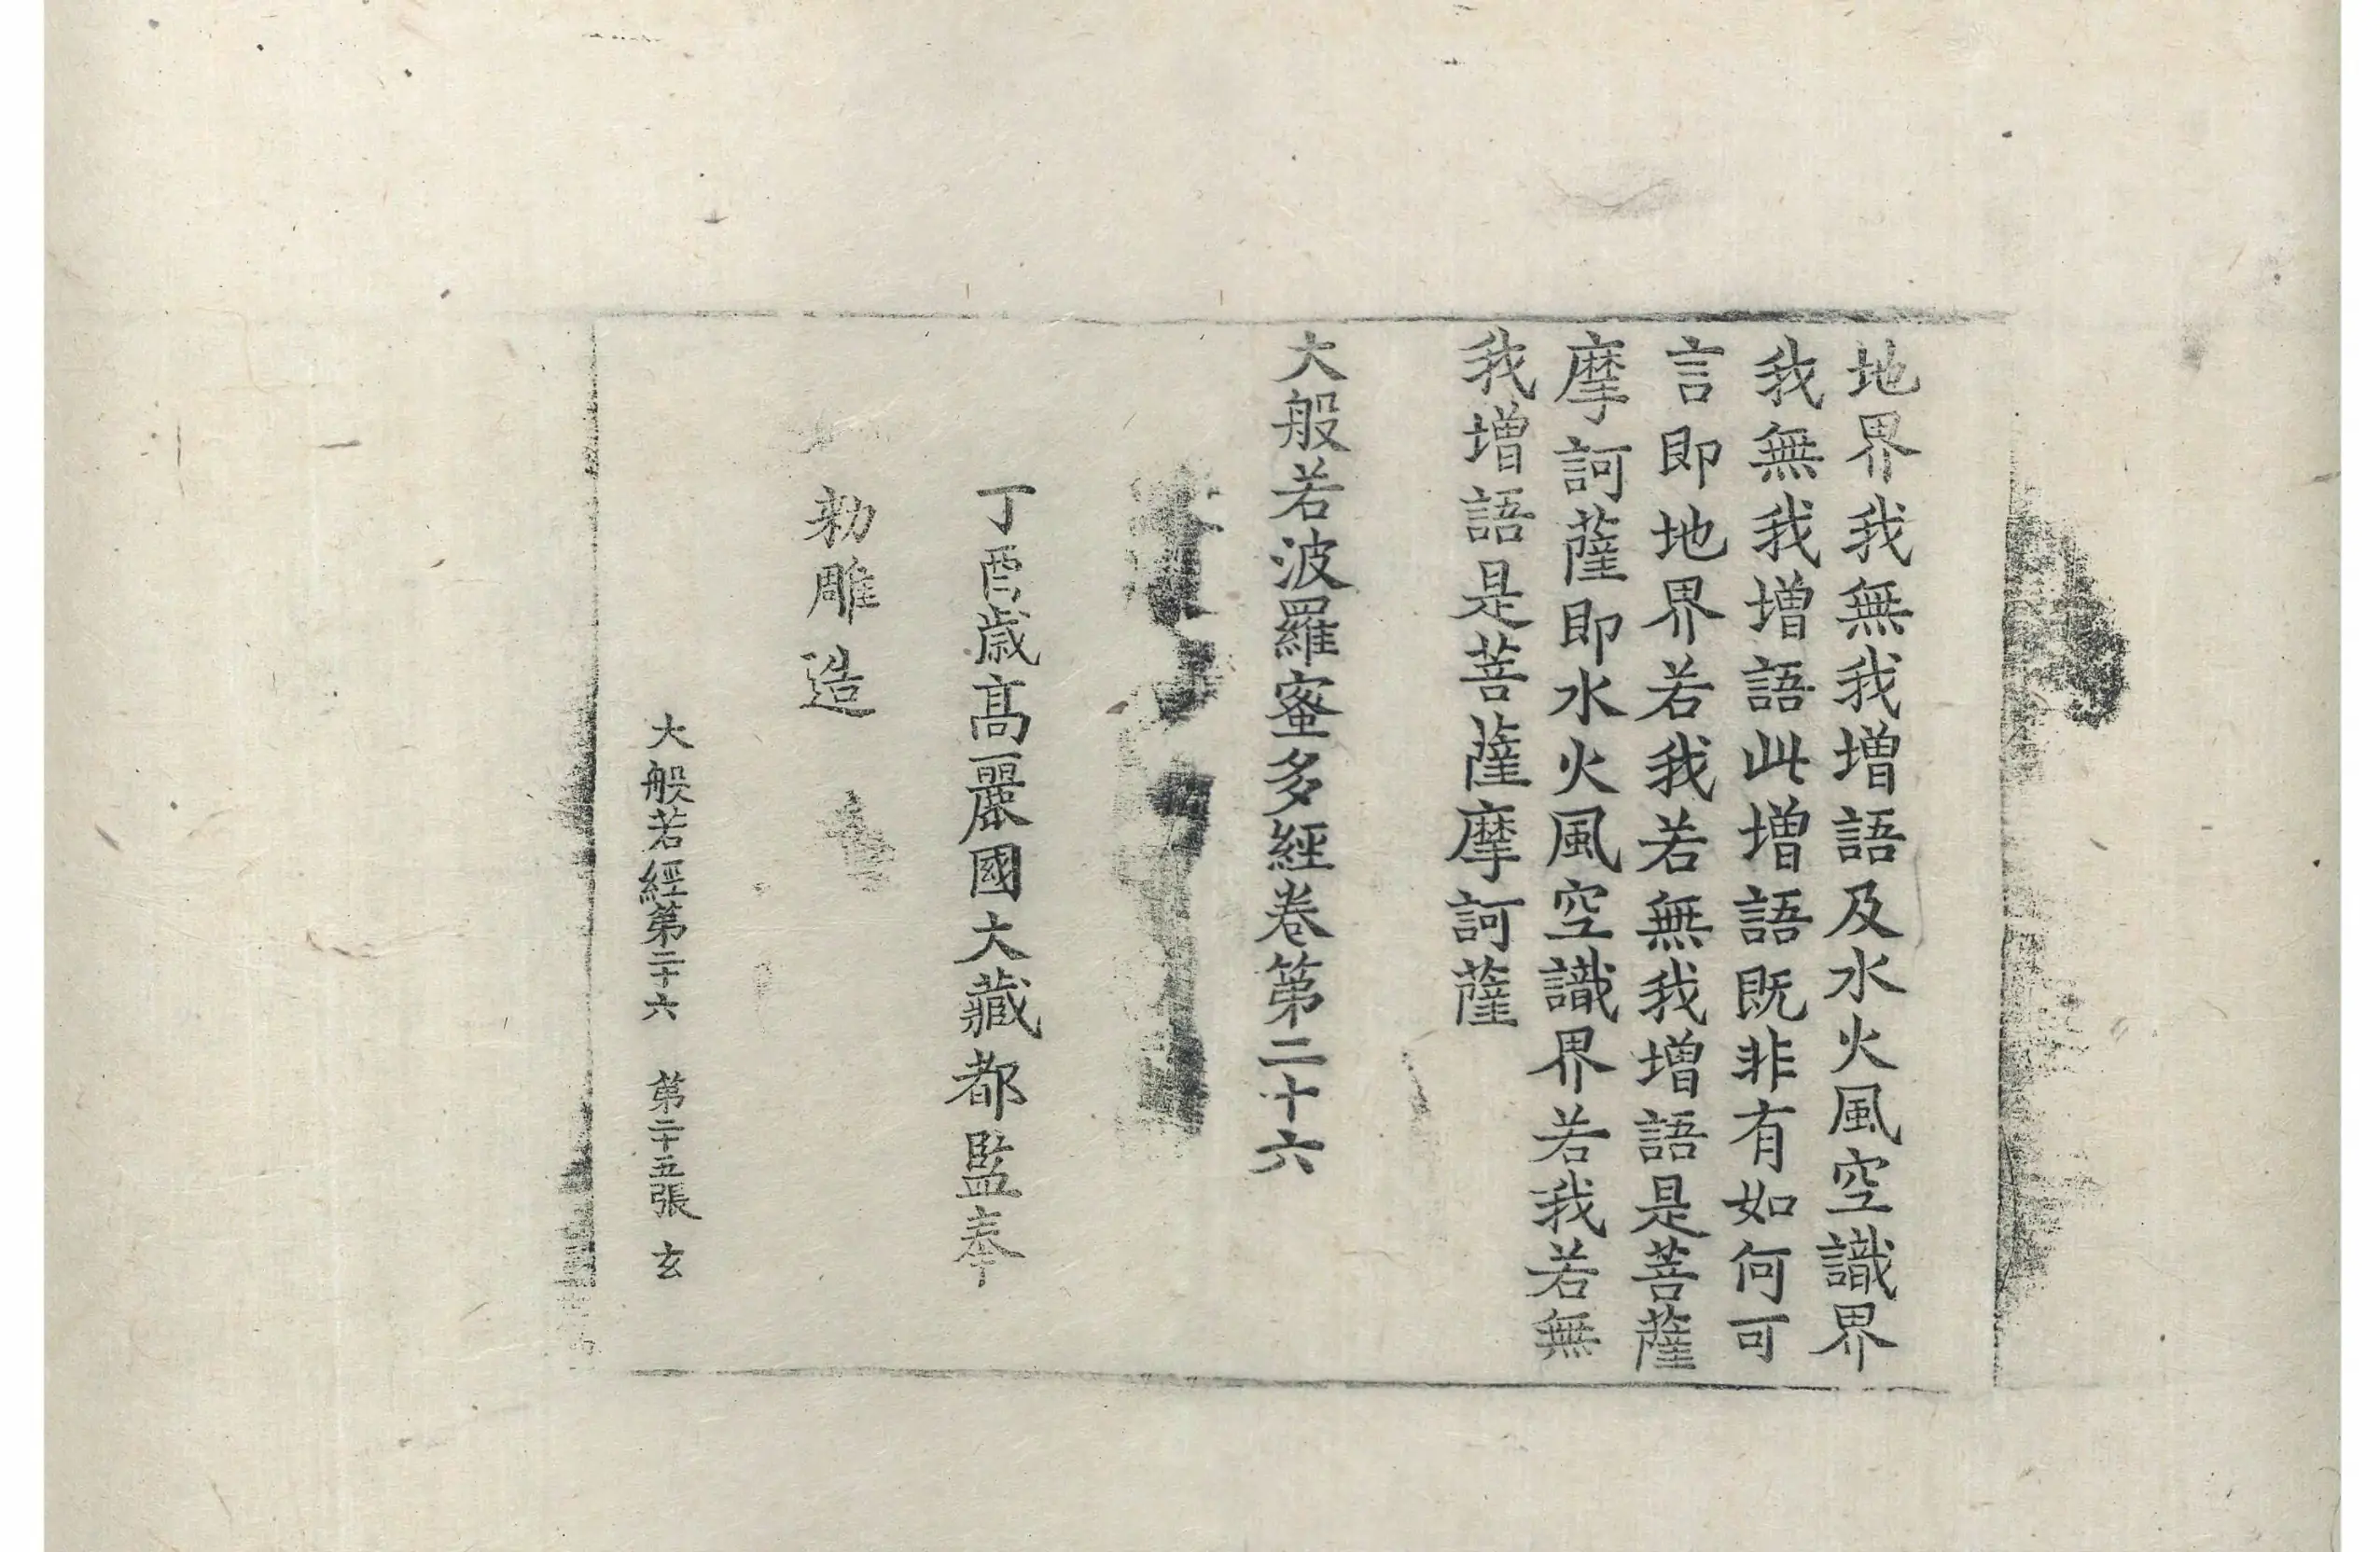 地界我無我增語及水火風空識界
我無我增語此增語既非有如何可
言即地界若我若無我增語是菩薩
摩訶薩即水火風空識界若我若無
我增語是菩薩摩訶薩
大般若波羅蜜多經卷第二十六
丁酉歲高麗國大藏都監奉
勅雕造
大般若經第二十六 第二十五張 玄